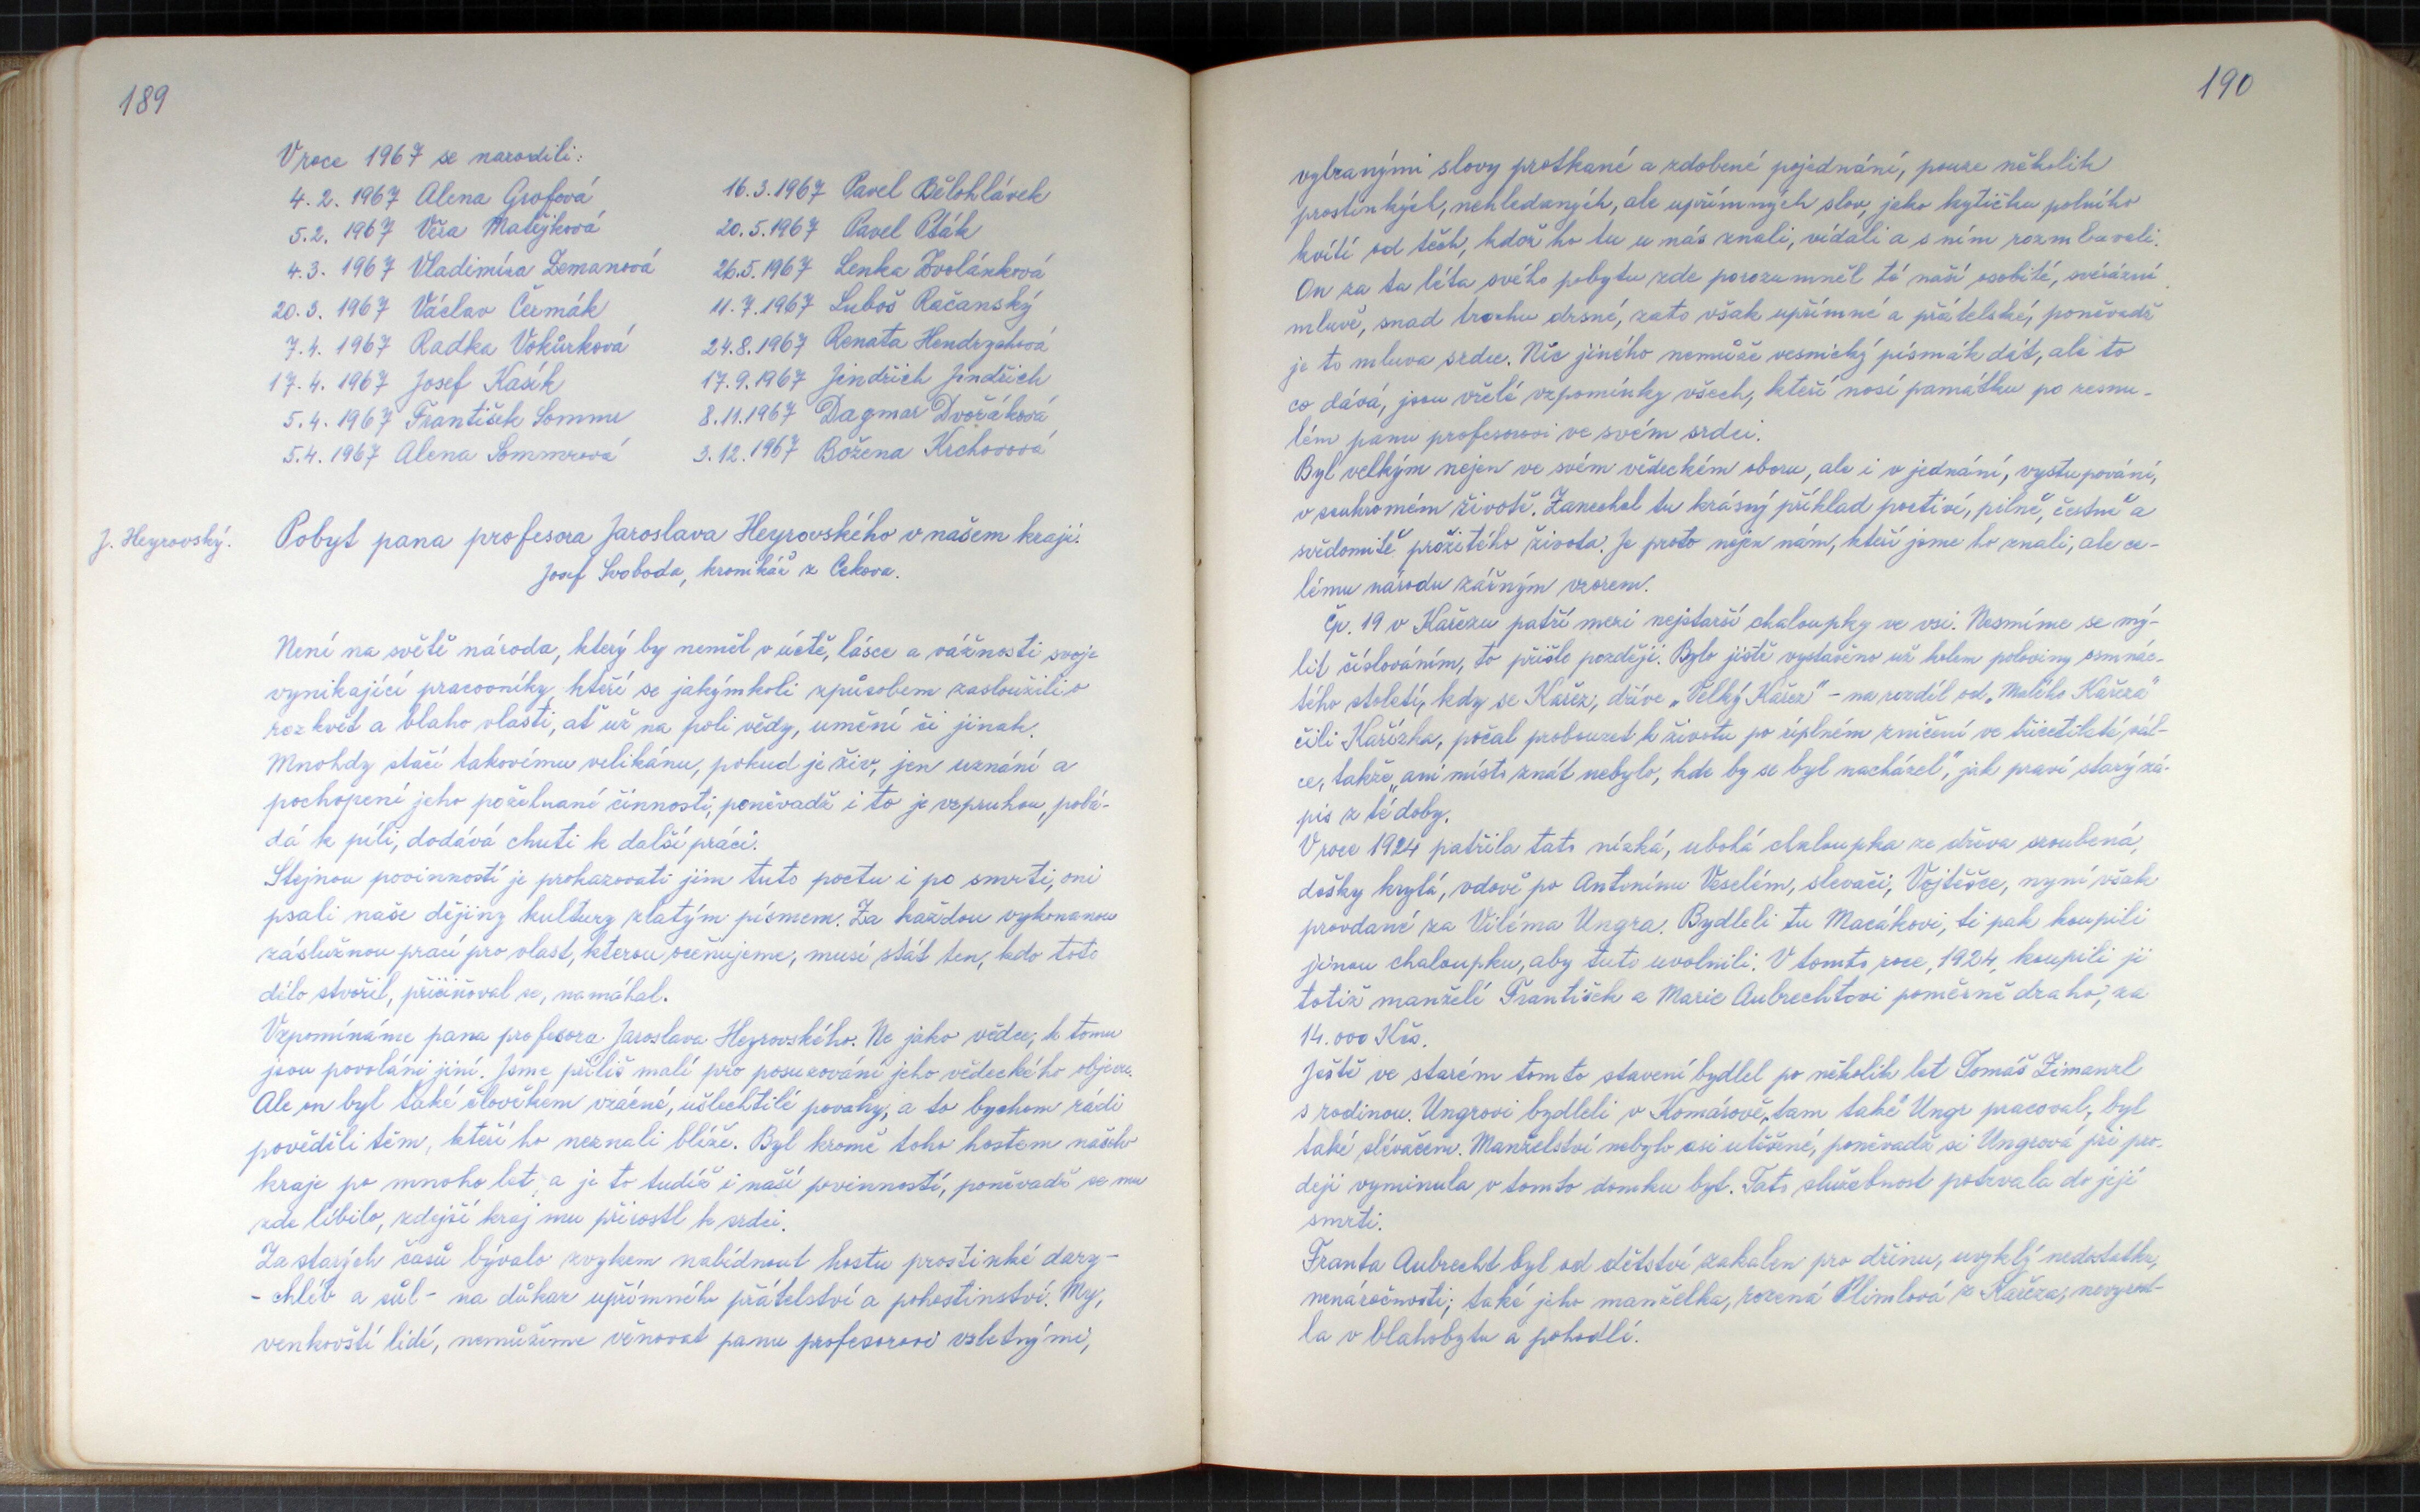 189
V roce 1967 se narodili:
4. 2. 1967 Alena Grofová
5. 2. 1967 Věra Matějková
4. 3. 1967 Vladimíra Zemanová
20. 3. 1967 Václav Čermák
7. 4. 1967 Radka Vokurková
17. 4. 1967 Josef Kasík
5. 4. 1967 František Sommer
5. 4. 1967 Alena Sommrová
16. 3. 1967 Pavel Bělohlávek
20. 5. 1967 Pavel Pták
26. 5. 1967 Lenka Zvolánková
11. 7. 1967 Luboš Račanský
24. 8. 1967 Renata Hendrychová
17. 9. 1967 Jindřich Jindřich
8. 11. 1967 Dagmar Dvořáková
3. 12. 1967 Božena Krchovová
J. Heyrovský.
Pobyt pana profesora Jaroslava Heyrovského v našem kraji.
Josef Svoboda, kronikář z Cekova.
Není na světě národa, který by neměl v úctě, lásce a vážnosti svoje
vynikající pracovníky, kteří se jakýmkoli způsobem zasloužili o
rozkvět a blaho vlasti, ať už na poli vědy, umění či jinak.
Mnohdy stačí takovému velikánu, pokud je živ, jen uznání a
pochopení jeho požehnané činnosti, poněvadž i to je vzpruhou, pobá-
dá k píli, dodává chuti k další práci.
Stejnou povinností je prokazovati jim tuto poctu i po smrti, oni
psali naše dějiny kultury zlatým písmem. Za každou vykonanou
záslužnou prací pro vlast, kterou oceňujeme, musí stát ten, kdo toto
dílo stvořil, přičiňoval se, namáhal.
Vzpomínáme pana profesora Jaroslava Heyrovského. Ne jako vědce, k tomu
jsou povoláni jiní. Jsme příliš malí pro posuzování jeho vědeckého objevu.
Ale on byl také člověkem vzácné, ušlechtilé povahy, a to bychom rádi
pověděli těm, kteří ho neznali blíže. Byl kromě toho hostem našeho
kraje po mnoho let, a je to tudíž i naší povinností, poněvadž se mu
zde líbilo, zdejší kraj mu přirostl k srdci.
Za starých časů bývalo zvykem nabídnout hostu prostinké dary -
- chléb a sůl - na důkaz upřímného přátelství a pohostinství. My,
venkovští lidé, nemůžeme věnovat panu profesorovi vzletnými,
190
vybranými slovy protkané a zdobené pojednání, pouze několik
prostinkých, nehledaných, ale upřímných slov, jako kytičku polního
kvítí od těch, kdož ho tu u nás znali, vídali a s ním rozmlouvali.
On za ta léta svého pobytu zde porozumněl té naší osobité, svérázné
mluvě, snad trochu drsné, zato však upřímné a přátelské, poněvadž
je to mluva srdce. Nic jiného nemůže vesnický písmák dát, ale to
co dává, jsou vřelé vzpomínky všech, kteří nosí památku po zesnu-
lém panu profesorovi ve svém srdci.
Byl velkým nejen ve svém vědeckém oboru, ale i v jednání, vystupování,
v soukromém životě. Zanechal tu krásný příklad poctivě, pilně, čestně a
svědomitě prožitého života. Je proto nejen nám, kteří jsme ho znali, ale ce-
lému národu zářným vzorem.
Čp. 19 v Kařezu patří mezi nejstarší chaloupky ve vsi. Nesmíme se mý-
lit číslováním, to přišlo později. Bylo jistě vystavěno už kolem poloviny osmnác-
tého století, kdy se Kařez, dříve „Velký Kařez" - na rozdíl od „Malého Kařeza"
čili Kařízka, počal probouzet k životu po úplném zničení ve třicetileté vál-
ce, takže „ani místo znát nebylo, kde by se byl nacházel", jak praví starý zá-
pis z té doby.
V roce 1924 patřila tato nízká, ubohá chaloupka ze dřeva sroubená,
došky krytá, vdově po Antonínu Veselém, slevači, Vojtěšce, nyní však
provdané za Viléma Ungra. Bydleli tu Macákovi, ti pak koupili
jinou chaloupku, aby tuto uvolnili. V tomto roce, 1924, koupili ji
totiž manželé František a Marie Aubrechtovi poměrně draho, za
14.000 Kčs.
Ještě ve starém tomto stavení bydlel po několik let Tomáš Zimanzl
s rodinou. Ungrovi bydleli v Komárově, tam také Ungr pracoval, byl
také slévačem. Manželství nebylo asi utěšené, poněvadž si Ungrová při pro-
deji vyminula v tomto domku byt. Tato služebnost potrvala do její
smrti.
Franta Aubrecht byl od dětství zakalen pro dřinu, uvyklý nedostatku,
nenáročnosti; také jeho manželka, rozená Plimlová z Kařeza, nevyrost-
la v blahobytu a pohodlí.